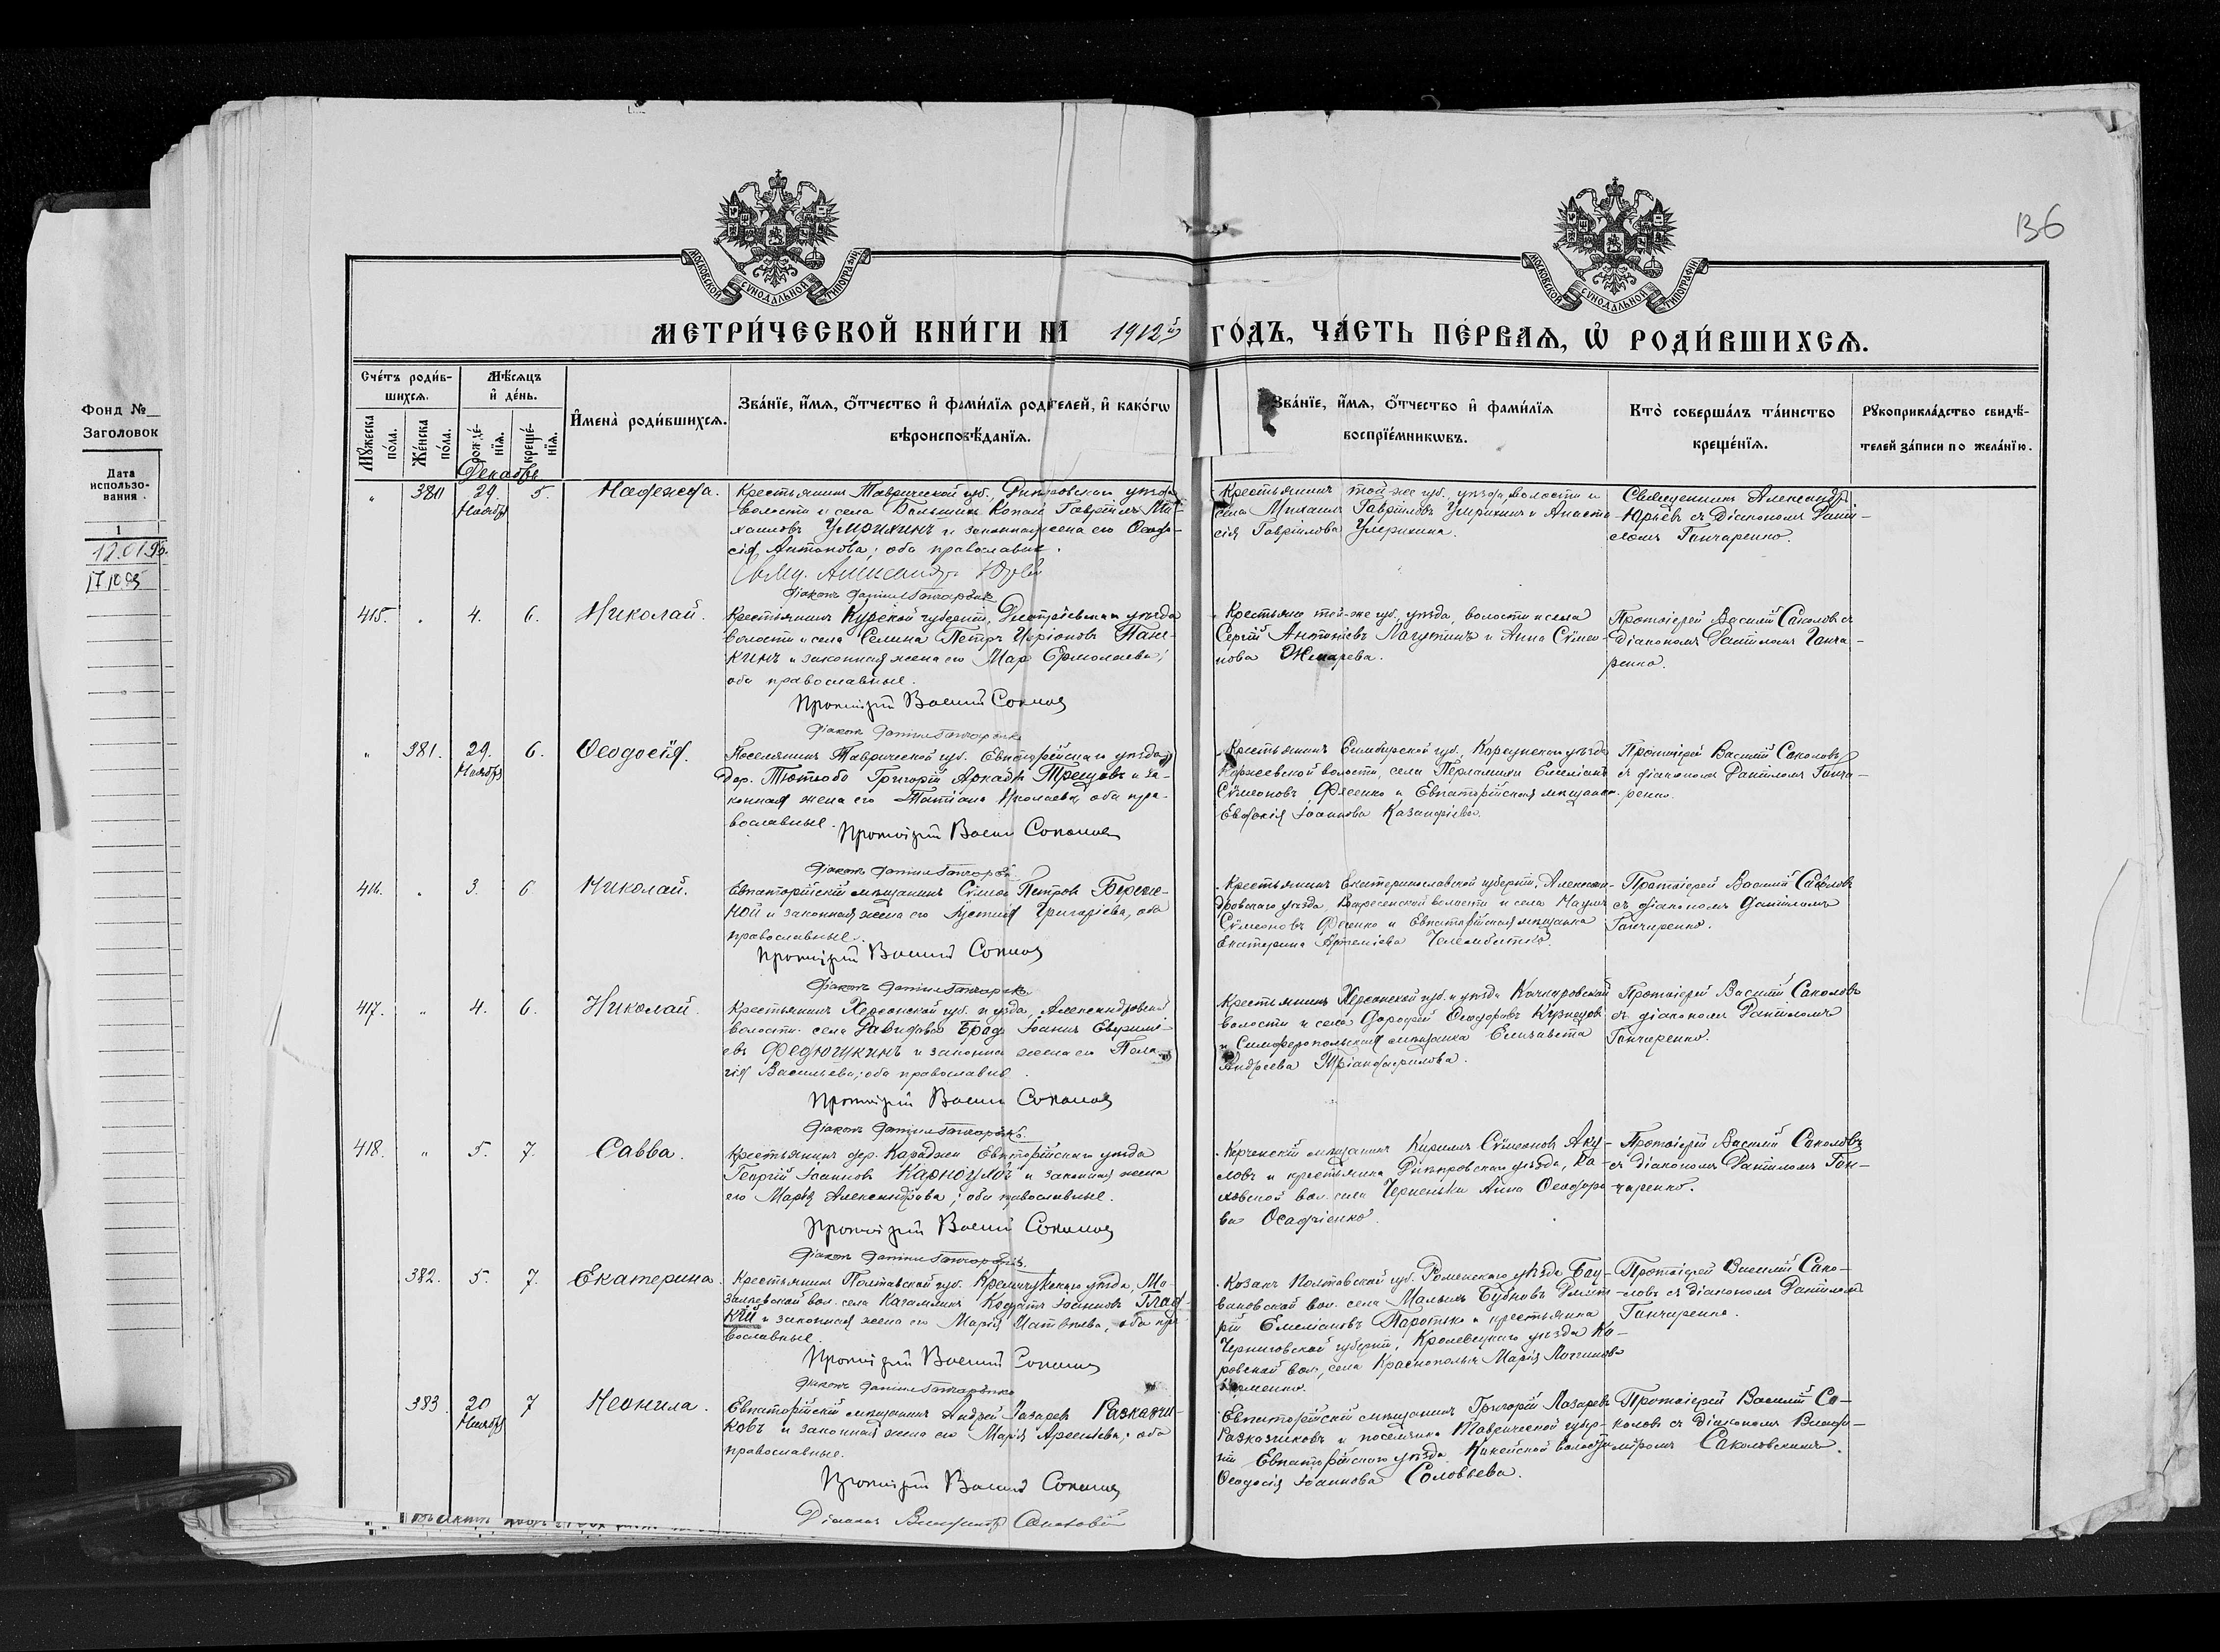 136
МОСКОВСКОЙ СѴНОДАЛЬНОЙ ТИПОГРАФІИ
МОСКОВСКОЙ СѴНОДАЛЬНОЙ ТИПОГРАФІИ
МЕТРИ́ЧЕСКОЙ КНИ́ГИ НА 1912й ГО́ДЪ, ЧА́СТЬ ПЕ́РВАѦ, Ѡ҆ РОДИ́ВШИХСѦ.
Счéтъ роди́в-
шихсѧ.
Мꙋ́жеска
по́ла.
Же́нска
по́ла.
Мѣ́сѧцъ
и҆ де́нь.
рожде́-
нїѧ.
креще́-
нїѧ.
И҆мена̀ роди́вшихсѧ.
Зва́нїе, и҆́мѧ, ѻ҆́тчество и҆ фами́лїѧ роди́телей, и҆ како́гѡ
вѣроисповѣ́данїѧ.
Зва́нїе, и҆́мѧ, ѻ҆́тчество и҆ фами́лїѧ
воспрїе́мникѡвъ.
Кто̀ соверша́лъ та́инство
креще́нїѧ.
Рꙋкоприкла́дство свидѣ́-
телей за́писи по жела́нїю.
Декабрь
" 380 29. Ноября 5. Надежда.
Крестьянинъ Таврической губ., Днѣпровскаго уѣзда
волости и села Большихъ Копани Гавріилъ Ми-
хаиловъ Умрихинъ и законная жена его Ѳеодо-
сія Антонова; оба православные.
Свящ. Александръ Юрьевъ
Діаконъ Даніилъ Гончаренко
Крестьянинъ той-же губ., уѣзда, волости и
села Михаилъ Гавріиловъ Умрихинъ и Анаста-
сія Гавріилова Умрихина.
Священникъ Александръ
Юрьевъ съ діакономъ Даніи-
ломъ Ганчаренко.
415. " 4. 6. Николай.
Крестьянинъ Курской губерніи, Дмитріевскаго уѣзда
волости и села Селина Петръ Иларіоновъ Пане-
кинъ и законная жена его Мар Ермолаева;
оба православные.
Протоіерей Василій Соколовъ
Діаконъ Даніилъ Гончаренко
Крестьяне той-же губ., уѣзда, волости и села
Сергій Антоніевъ Лагутинъ и Анна Сѵмео-
нова Жмарева.
Протоіерей Василій Соколовъ съ
діакономъ Даніиломъ Ганча-
ренко.
" 381. 29. Ноября 6. Ѳеодосія.
Поселянинъ Таврической губ. Евпаторійскаго уѣзда
дер. Тюмтюбо Григорій Аркадіевъ Трещовъ и за-
конная жена его Татіана Николаева, оба пра-
вославные.
Протоіерей Василій Соколовъ
Діаконъ Даніилъ Гончаренко
Крестьянинъ Симбирской губ., Корсунскаго уѣзда
Коржевской волости, села Емеліанъ
Сѵмеоновъ и Евпаторійская мѣщанка
Евдокія Іоаннова
Протоіерей Василій Соколовъ
съ діакономъ Даніиломъ Ганча-
ренко.
416. " 3. 6 Николай.
Евпаторійскій мѣщанинъ Сѵмеонъ Петровъ Береж-
ной и законная жена его Іустинія Григоріева, оба
православные.
Протоіерей Василій Соколовъ
Діаконъ Даніилъ Гончаренко
Крестьянинъ Екатеринославской губерніи, Алексан-
дровскаго уѣзда, Воскресенской волости и села Наумъ
Сѵмеоновъ Фесенко и Евпаторійская мѣщанка
Екатерина Артеміева
Протоіерей Василій Соколовъ
съ діакономъ Даніиломъ
Ганчаренко.
417. " 4. 6. Николай.
Крестьянинъ Херсонской губ. и уѣзда, Александровской
волости села Давидовъ Бродъ Іоаннъ Евѳимі-
евъ Федюшкинъ и законная жена его Пела-
гія Васильева; оба православные.
Протоіерей Василій Соколовъ
Діаконъ Даніилъ Гончаренко.
Крестьянинъ Херсонской губ. и уѣзда Качкаровской
волости и села Дорофей Ѳеодоровъ Кузнецовъ
и Симферопольская мѣщанка Елизавета
Андреева Тріандафилова.
Протоіерей Василій Соколовъ
съ діакономъ Даніиломъ
Ганчаренко.
418. " 5. 7. Савва.
Крестьянинъ дер. Караджи Евпаторійскаго уѣзда
Георгій Іоанновъ Карногузловъ и законная жена
его Марѳа Александрова; оба православные.
Протоіерей Василій Соколовъ
Діаконъ Даніилъ Гончаренко.
Керченскій мѣщанинъ Кириллъ Сѵмеоновъ Аку-
ловъ и крестьянка Днѣпровскаго уѣзда, Ка-
ховской вол. села Черненьки Анна Ѳеодоро-
ва Осадченко.
Протоіерей Василій Соколовъ
съ діакономъ Даніиломъ Ган-
чаренко.
382. 5. 7. Екатерина.
Крестьянинъ Полтавской губ. Кременчугскаго уѣзда, Мо-
залѣевской вол. села Козатъ Іоанновъ Глад-
кій и законная жена его Марія Матвѣева, оба пра-
вославные.
Протоіерей Василій Соколовъ
Діаконъ Даніилъ Гончаренко
Козакъ Полтавской губ. Роменскаго уѣзда Бац-
мановской вол. села Малыхъ Бубновъ Дмит-
рій Емеліановъ Паротько и крестьянка
Черниговской губерніи, Кролевецкаго уѣзда Ко-
ропской вол., села Краснополья Марія Логгинова
Протоіерей Василій Соко-
ловъ съ діакономъ Даніиломъ
Ганчаренко.
383. 20 Ноября 7 Неонила.
Евпаторійскій мѣщанинъ Андрей Лазаревъ Расказчи-
ковъ и законная жена его Марія Арсеньева; оба
православные.
Протоіерей Василій Соколовъ
Діаконъ Владиміръ Соколовскій
Евпаторійскій мѣщанинъ Григорій Лазаревъ
Разказчиковъ и поселянка Таврической губер-
ніи Евпаторійскаго уѣзда волости
Ѳеодосія Іоаннова Соловьева.
Протоіерей Василій Со-
коловъ съ діакономъ Влади-
міромъ Соколовскимъ.
Фонд №
Заголовок
Дата
использо-
вания
1
12.01.95.
17.10.95